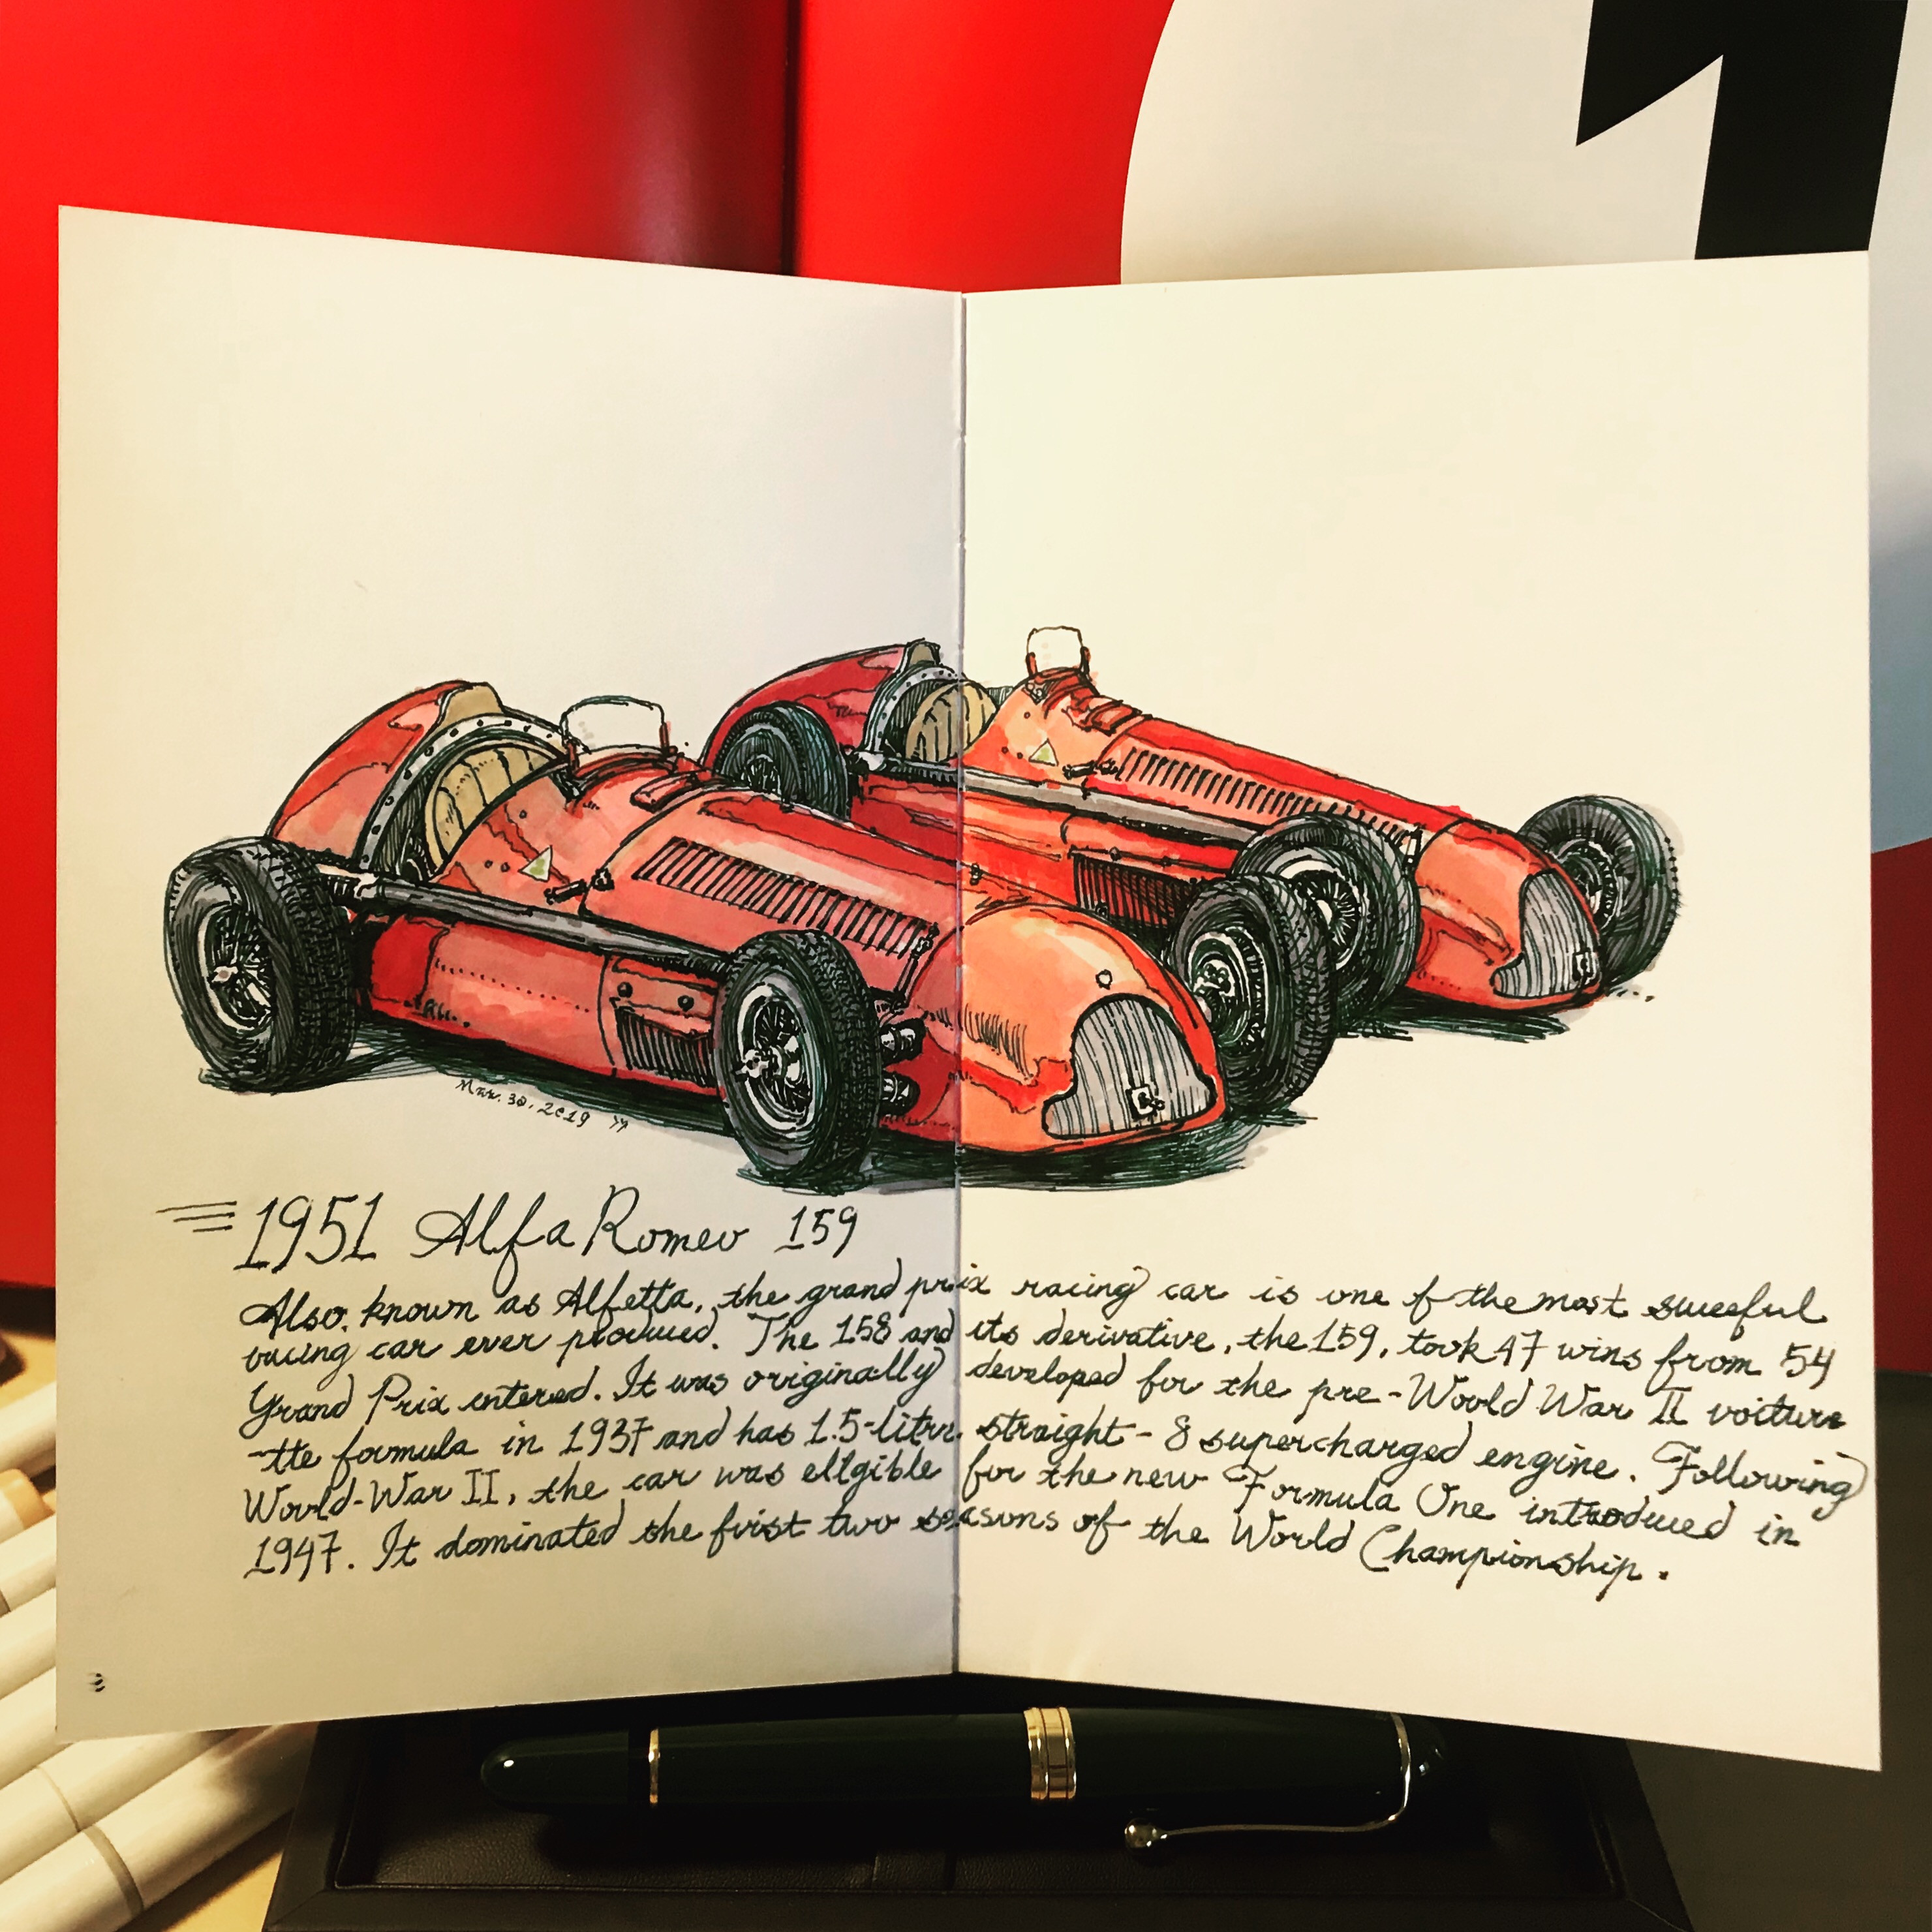 1
Mar. 30. 2019
1951 Alfa Romeo 159
Also known as Alfetta, the grand prix racing car is one of the most succeful
racing car ever produced. The 158 and its derivative, the 159, took 47 wins from 54
Grand Prix entered. It was originally developed for the pre-World War II voiture
-tte formula in 1937 and has 1.5-litre straight-8 supercharged engine. Following
World-War II, the car was eligible for the new Formula One introduced in
1947. It dominated the first two seasons of the World Championship.